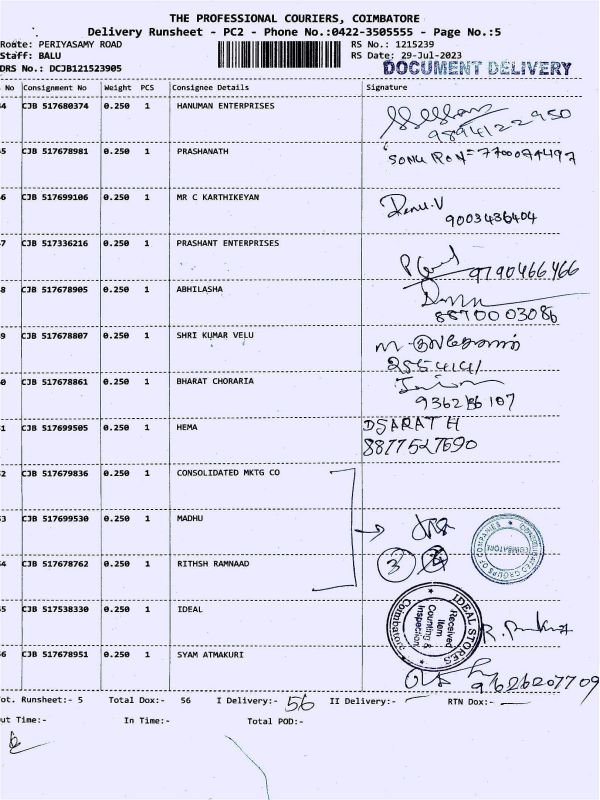 THE PROFESSIONAL COURIERS, COIMBATORE
Delivery Runsheet - PC2 - Phone No.:0422-3505555 - Page No.:5
Route: PERIYASAMY ROAD RS No.: 1215239
Staff: BALU RS Date: 29-Jul-2023
DRS No.: DCJB121523905 DOCUMENT DELIVERY
No Consignment No Weight PCS Consignee Details Signature
4 CJB 517680374 0.250 1 HANUMAN ENTERPRISES
9894122950
5 CJB 517678981 0.250 1 PRASHANATH
6 CJB 517699106 0.250 1 MR C KARTHIKEYAN
9003436404
7 CJB 517336216 0.250 1 PRASHANT ENTERPRISES
9790466466
8 CJB 517678905 0.250 1 ABHILASHA
8870003086
9 CJB 517678807 0.250 1 SHRI KUMAR VELU
2554141
0 CJB 517678861 0.250 1 BHARAT CHORARIA
1 CJB 517699505 0.250 1 HEMA
DSARATH
8877527690
2 CJB 517679836 0.250 1 CONSOLIDATED MKTG CO
3 CJB 517699530 0.250 1 MADHU
CONSOLIDATED GROUPS OF COMPANIES
COIMBATORE
4 CJB 517678762 0.250 1 RITHSH RAMNAAD
3
5 CJB 517538330 0.250 1 IDEAL
IDEAL STORES
Coimbatore
Received
Item
Counting &
Inspection
6 CJB 517678951 0.250 1 SYAM ATMAKURI
9626207709
ot. Runsheet:- 5 Total Dox:- 56 I Delivery:- 56 II Delivery:- RTN Dox:-
ut Time:- In Time:- Total POD:-